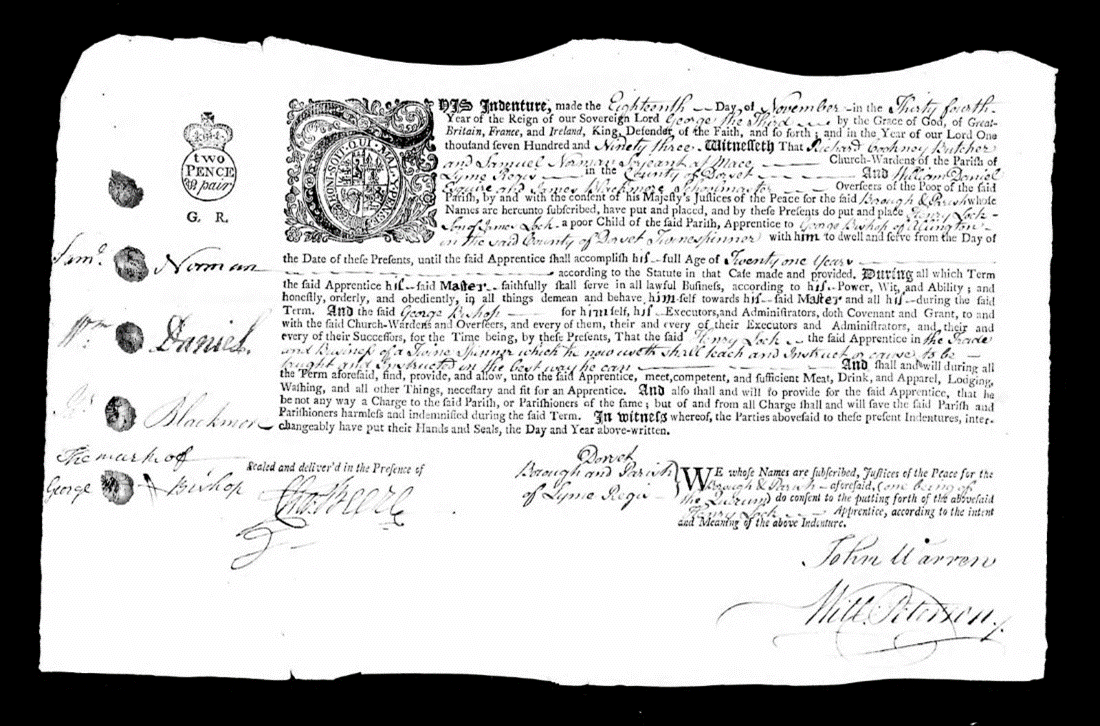 THIS Indenture, made the Eighteenth Day, of November in the Thirty fourth
Year of the Reign of our Sovereign Lord George the Third by the Grace of God, of Great-
Britain, France, and Ireland, King, Defender, of the Faith, and so forth; and in the Year of our Lord One
thousand seven Hundred and Ninety three. Witnesseth That Richard Cockney Butcher
and Samuel Norman Serjeant at Mace Church-Wardens of the Parish of
Lyme Regis in the County of Dorset And William Daniel
Esquire and James Blackmore Schoolmaster Overseers of the Poor of the said
Parish, by and with the consent of his Majesty's Justices of the Peace for the said Borough & Parish whose
Names are hereunto subscribed, have put and placed, and by these Presents do put and place Henry Lock
Son of James Lock a poor Child of the said Parish, Apprentice to George Bishop of Allington
in the said County of Dorset Twinespinner with him to dwell and serve from the Day of
the Date of these Presents, until the said Apprentice shall accomplish his full Age of Twenty one Years
according to the Statute in that Case made and provided. During all which Term
the said Apprentice his said Master faithfully shall serve in all lawful Business, according to his Power, Wit, and Ability; and
honestly, orderly, and obediently, in all things demean and behave himself towards his said Master and all his during the said
Term. And the said George Bishop for himself, his Executors, and Administrators, doth Covenant and Grant, to and
with the said Church-Wardens and Overseers, and every of them, their and every of their Executors and Administrators, and their and
every of their Successors, for the Time being, by these Presents, That the said Henry Lock the said Apprentice in the Trade
and Business of a Twine Spinner which he now useth shall teach and Instruct or cause to be
taught and Instructed in the best way he can And shall and will during all
the Term aforesaid, find, provide, and allow, unto the said Apprentice, meet, competent, and sufficient Meat, Drink, and Apparel, Lodging,
Washing, and all other Things, necessary and fit for an Apprentice. And also shall and will so provide for the said Apprentice, that he
be not any way a Charge to the said Parish, or Parishioners of the same; but of and from all Charge shall and will save the said Parish and
Parishioners harmless and indemnified during the said Term. In witness whereof, the Parties abovesaid to these present Indentures, inter-
changeably have put their Hands and Seals, the Day and Year above-written.
two
PENCE
pair
G. R.
HONI·SOIT·QUI·MAL·Y·PENSE
Sam.l Norman
Wm. Daniel
Jas. Blackmore
The mark of
George Bishop
Sealed and deliver'd in the Presence of
Dorset
Borough and Parish
of Lyme Regis
WE whose Names are subscribed, Justices of the Peace for the
Borough & Parish aforesaid, (one being of
the Quorum do consent to the putting forth of the abovesaid
Henry Lock Apprentice, according to the intent
and Meaning of the above Indenture.
John Warren